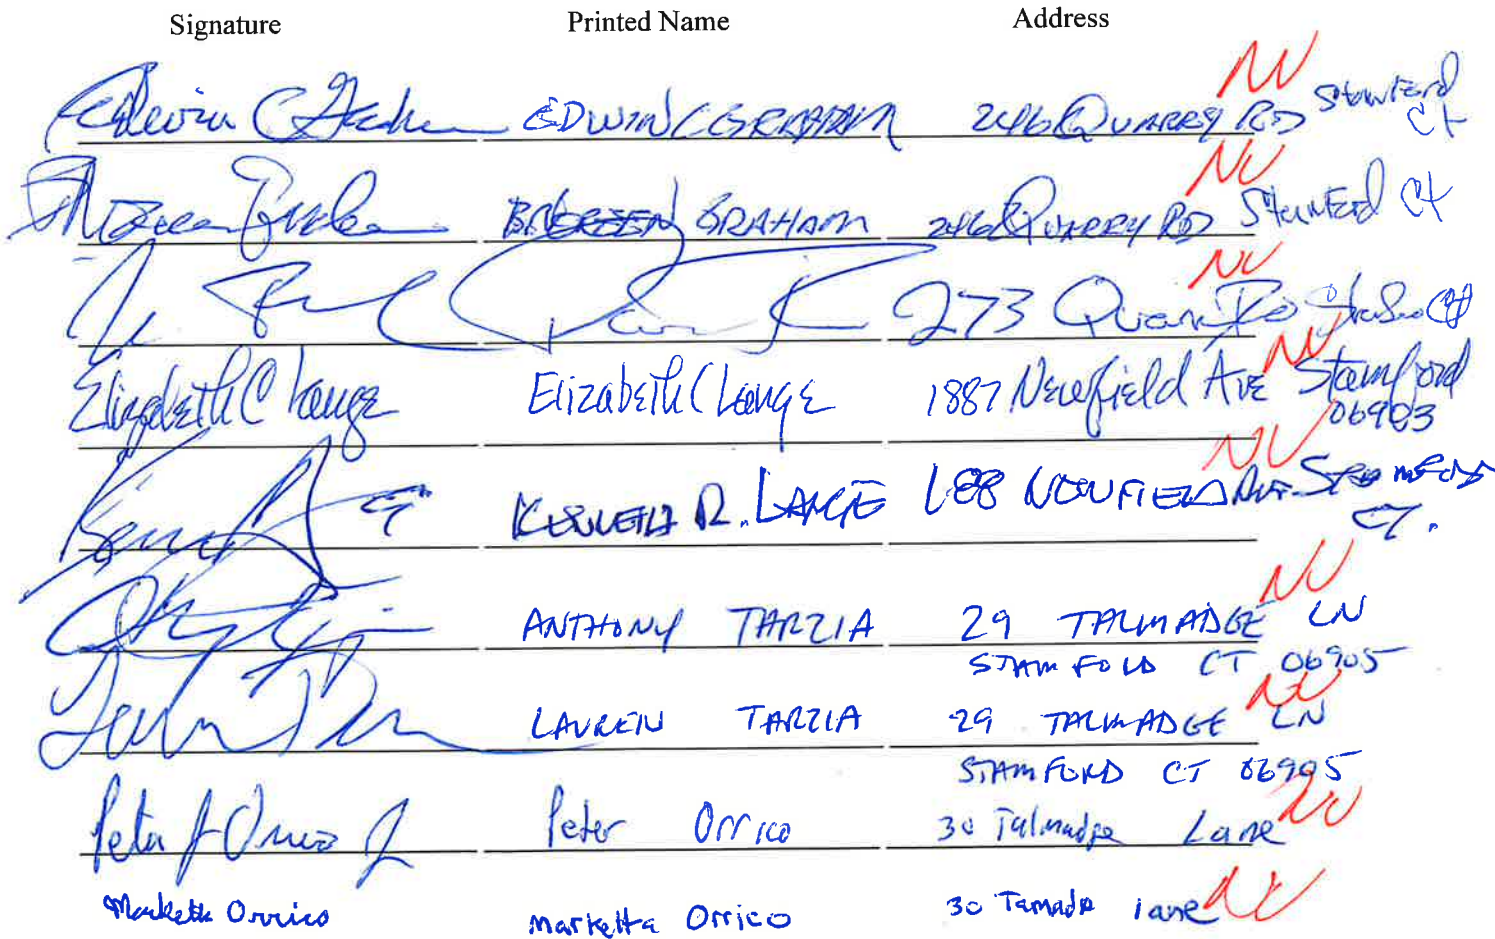 Signature Printed Name Address
NV
Edwin C Graham EDWIN C GRAHAM 246 QUARRY RD Stamford Ct
NV
GRAHAM 246 QUARRY RD Stamford Ct
NV
273 Quarry Rd Ct
NV
Elizabeth C Lange Elizabeth C Lange 1887 Newfield Ave Stamford
06903
NV
KENNETH R. LANGE 188 NEWFIELD Ave Stamford
CT.
NV
ANTHONY TARZIA 29 TALMADGE LN
STAMFORD CT 06905
NV
LAUREN TARZIA 29 TALMADGE LN
STAMFORD CT 06905
NV
Peter J Orrico Jr Peter Orrico 30 Talmadge Lane
NV
Marketta Orrico Marketta Orrico 30 Tamade lane